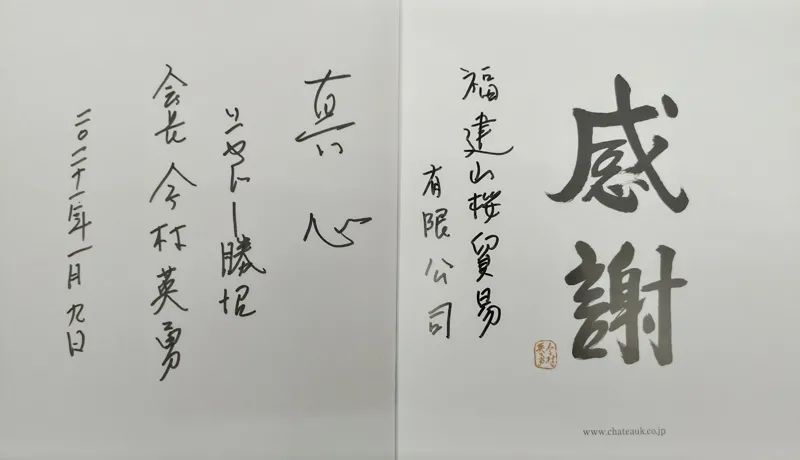 感謝
福建山桜貿易
有限公司
www.chateauk.co.jp
真心
シャトー勝沼
会長 今村英勇
二〇二十一年一月九日